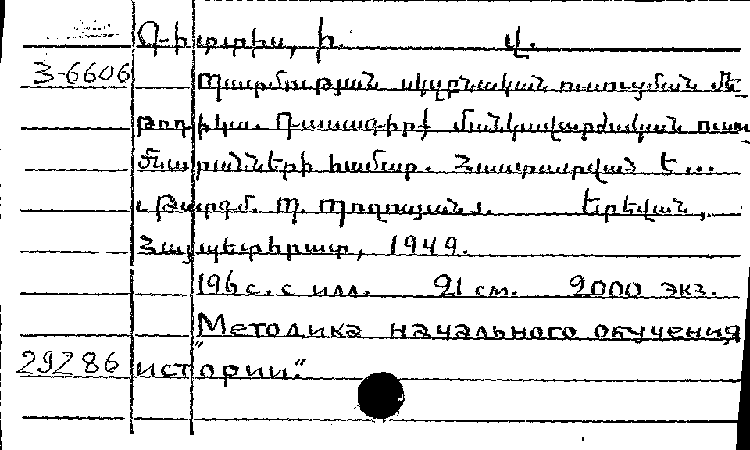 Վ.
3-6606 Պատմության սկզբնական ուսուցման մե-
թոդիկա. Դասագիրք մանկավարժական ուսում
նարանների համար. Հաստատված է...
Թարգմ. Պ. Պողոսյան. Երեվան,
Հայպետհրատ, 1949.
196 с. с илл. 21 см. 2000 экз.
"Методика начального обучения
29286 истории."